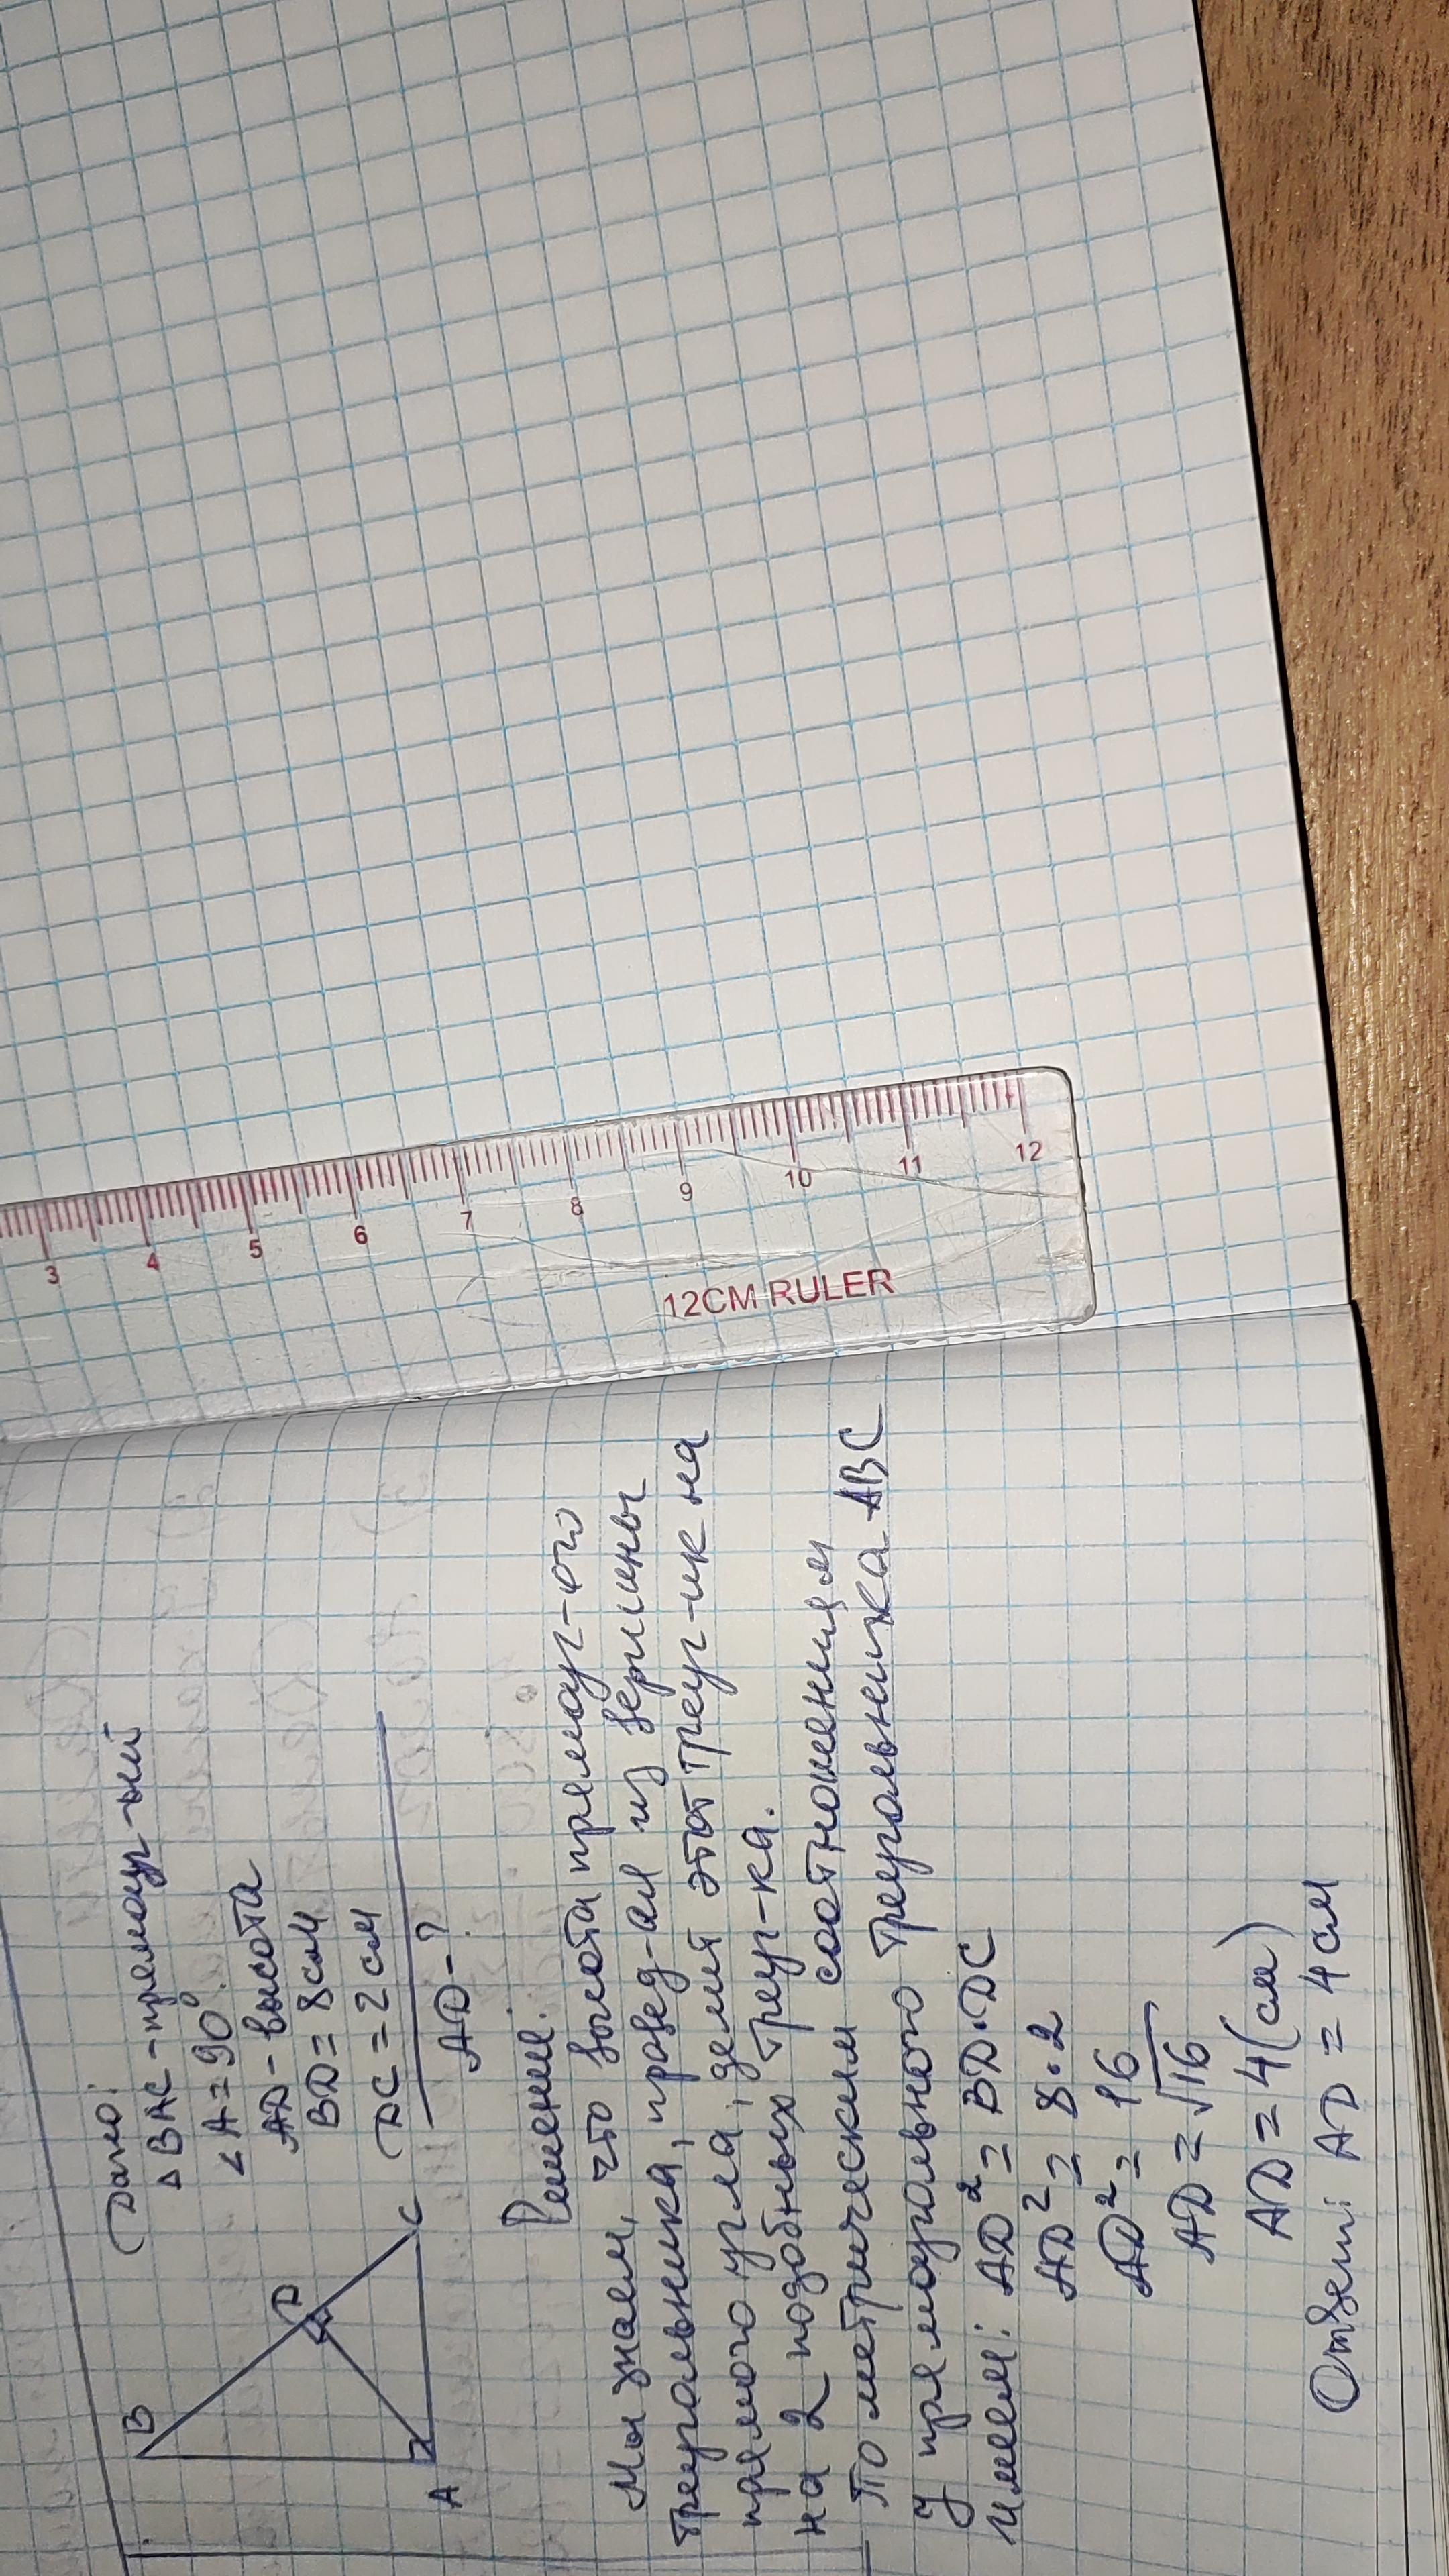 Дано:
△ BAC - прямоуг-ый
∠A = 90°.
AD - высота
BD = 8 см
DC = 2 см
AD - ?
B
D
C
A
Решение:
Мы знаем, что высота прямоуг-ого
треугольника, провед-ая из вершины
прямого угла, делит этот треуг-ик на
на 2 подобных треуг-ка.
По метрическим соотношениям
у прямоугольного треугольника ABC
имеем: AD² = BD·DC
AD² = 8·2
AD² = 16
AD = √16
AD = 4 (см)
Ответ: AD = 4 см
3 4 5 6 7 8 9 10 11 12
12CM RULER